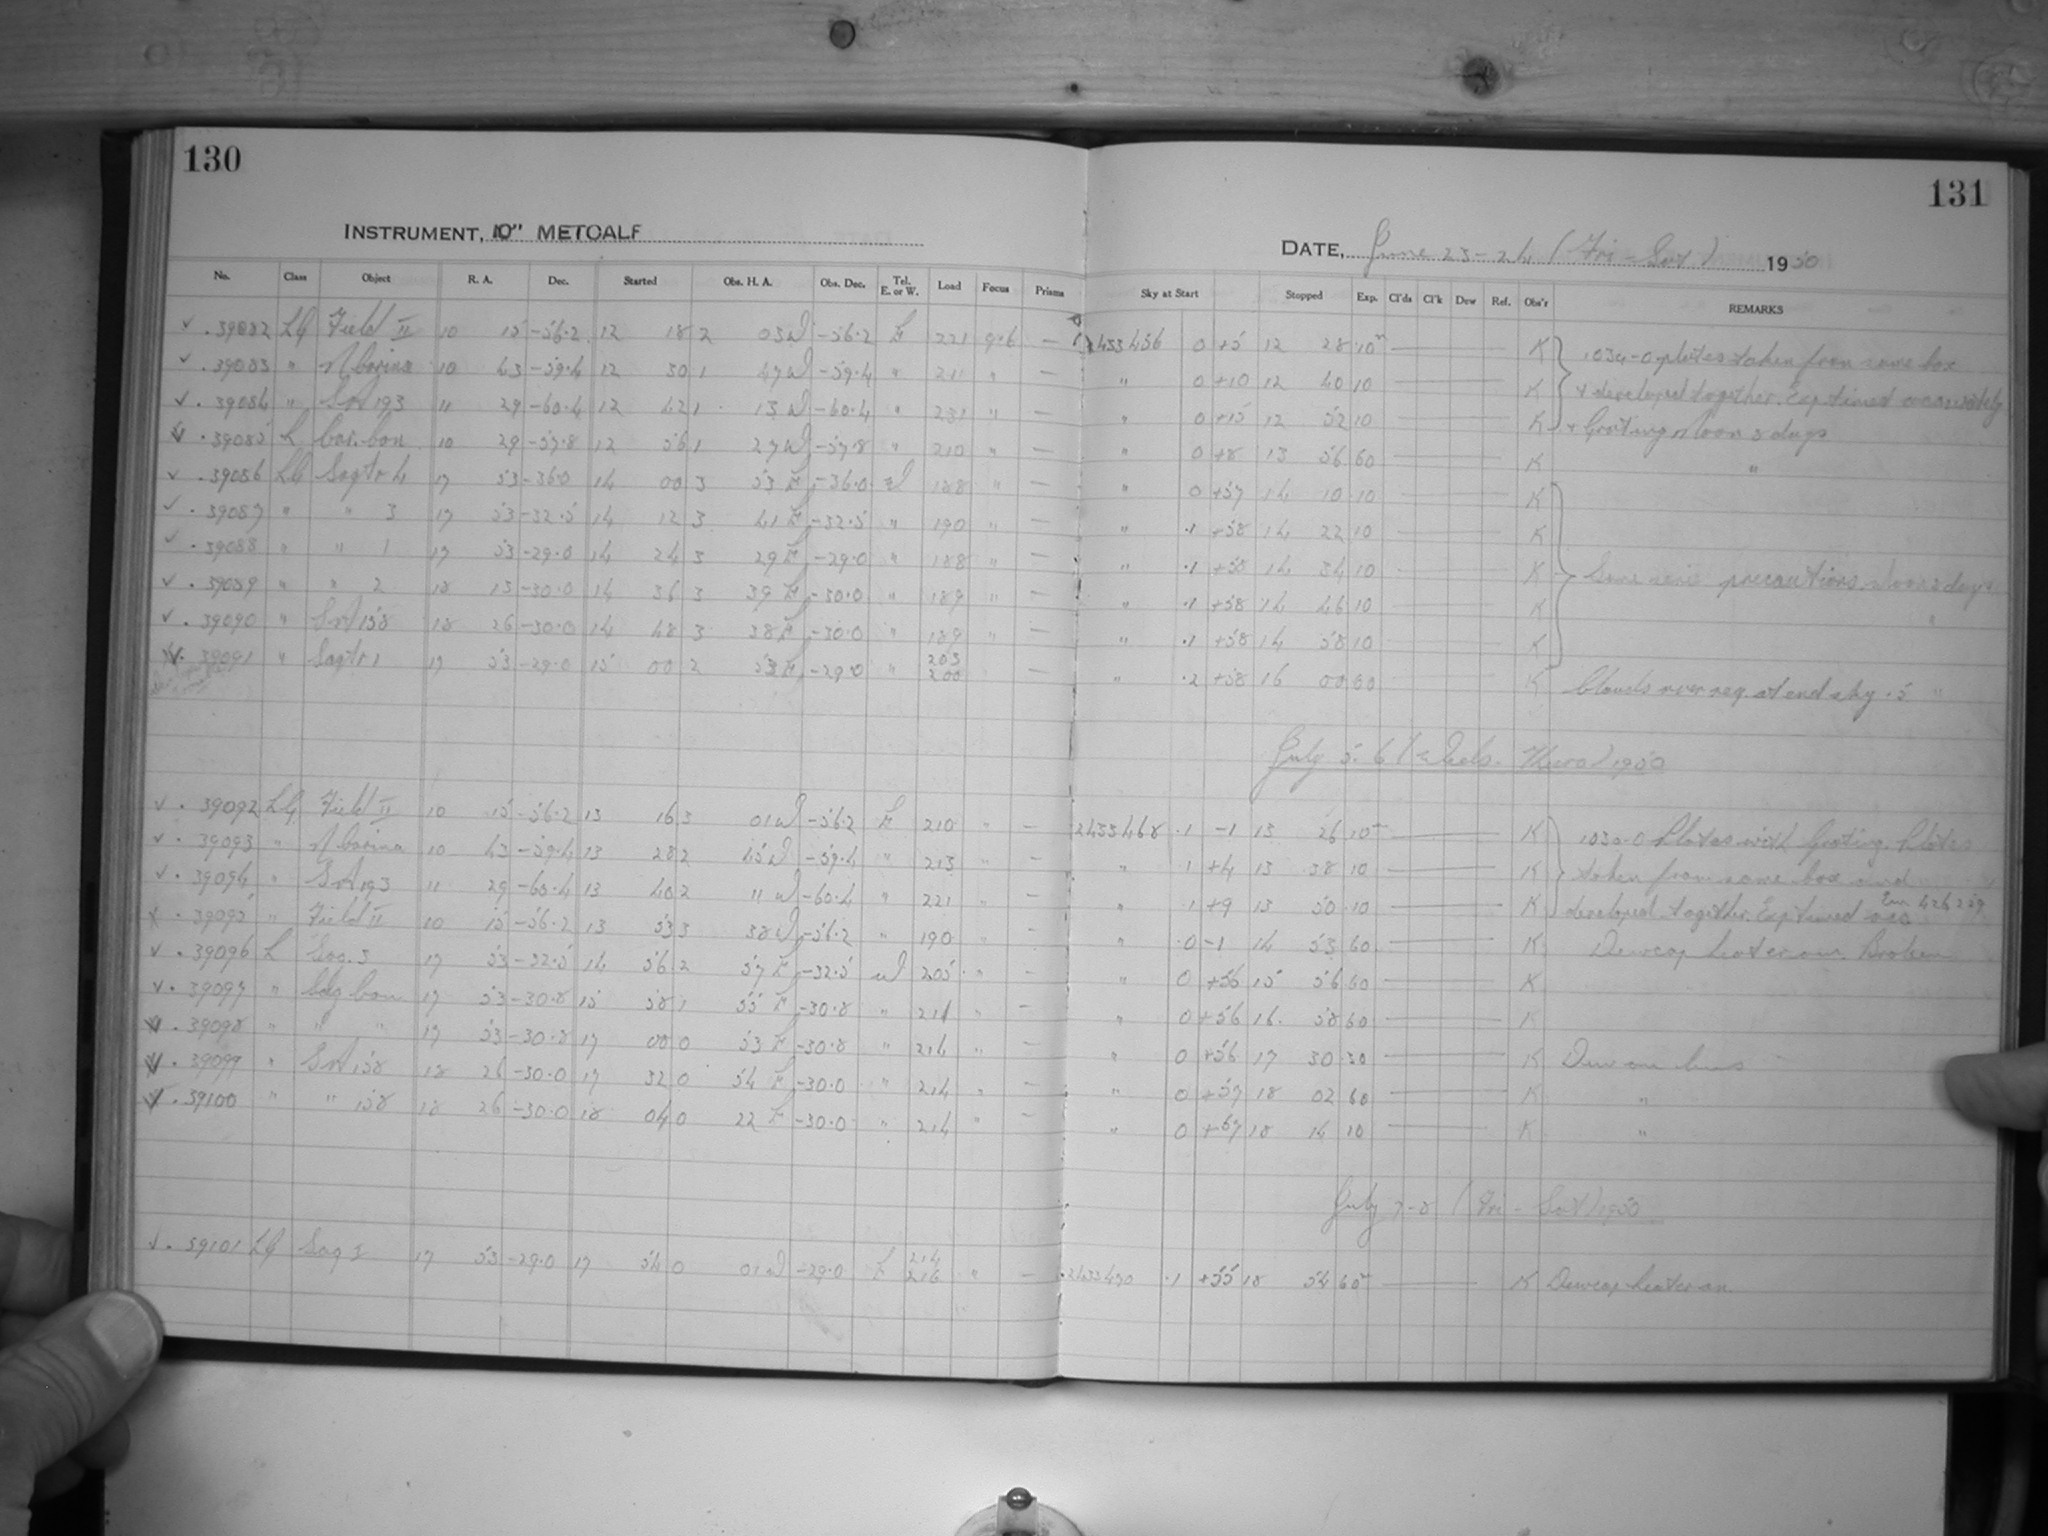 130
131
INSTRUMENT, 10" METCALF
DATE, June 23-24 (Fri - Sat) 1950
No. Class Object R. A. Dec. Started Obs. H. A. Obs. Dec. Tel. E. or W. Load Focus Prisms Sky at Start Stopped Exp. Cl'ds Cl'k Dew Ref. Obs'r REMARKS
39082 LG Field II 10 15 -56.2 12 18 2 03 W -56.2 E 221 9.6 — 2433456 0 +5 12 28 10 K
39083 " N Carina 10 43 -59.4 12 30 1 47 W -59.4 " 211 " — " 0 +10 12 40 10 K
39084 " SA 193 11 29 -60.4 12 42 1 13 W -60.4 " 231 " — " 0 +15 12 52 10 K + Grating Moon 8 days
39085 L Car. bon 10 29 -57.8 12 56 1 27 W -57.8 " 210 " — " 0 +8 13 56 60 K "
39086 LG Sagtr 4 17 53 -36.0 14 00 3 53 E -36.0 W 188 " — " 0 +57 14 10 10 K
39087 " " 3 17 53 -32.5 14 12 3 41 E -32.5 " 190 " — " .1 +58 14 22 10 K
39088 " " 1 17 53 -29.0 14 24 3 29 E -29.0 " 188 " — " .1 +58 14 34 10 K
39089 " " 2 18 15 -30.0 14 36 3 39 E -30.0 " 189 " — " .1 +58 14 46 10 K
39090 " SA 158 18 26 -30.0 14 48 3 38 E -30.0 " 189 " — " .1 +58 14 58 10 K
39091 " Sagtr 1 17 53 -29.0 15 00 2 53 E -29.0 " 203 200 — " .2 +58 16 00 60 K Clouds over reg at end sky .5 "
July 5-6 (Weds. Thurs) 1950
39092 LG Field II 10 15 -56.2 13 16 3 01 W -56.2 E 210 " — 2433468 .1 -1 13 26 10 K 1030-0 Plates with Grating. Plates
39093 " N Carina 10 43 -59.4 13 28 2 45 W -59.4 " 213 — " .1 +4 13 38 10 K taken from same box and
39094 " SA 193 11 29 -60.4 13 40 2 11 W -60.4 " 221 " — " .1 +9 13 50 10 K developed together. Exp timed
39095 " Field II 10 15 -56.2 13 53 3 38 W -56.2 " 190 " — " .0 -1 14 53 60 K Dewcap heater on. Broken
39096 L Sag. 3 17 53 -32.5 14 56 2 57 E -32.5 W 205 " — " 0 +56 15 56 60 K
39097 " Sag bon 17 53 -30.8 15 58 1 55 E -30.8 " 211 — " 0 +56 16 58 60 K
39098 " " " 17 53 -30.8 17 00 0 53 E -30.8 " 214 " — " 0 +56 17 30 30 K Dew on lens
39099 " SA 158 18 26 -30.0 17 32 0 54 E -30.0 " 214 " — " 0 +57 18 02 60 K "
39100 " " 158 18 26 -30.0 18 04 0 22 E -30.0 " 214 " — " 0 +57 18 14 10 K "
July 7-8 (Fri - Sat) 1950
39101 LG Sag 1 17 53 -29.0 17 54 0 01 W -29.0 E 214 216 " — 2433470 .1 +55 18 54 60 K Dewcap heater on.